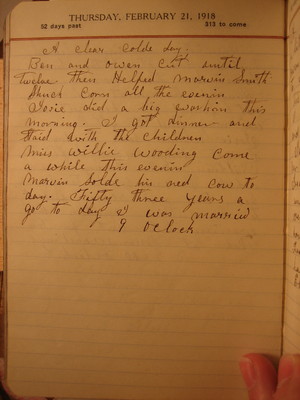 THURSDAY, FEBRUARY 21, 1918
52 days past 313 to come
A clear colde day.
Ben and owen cut until
twelve then Helped Marvin Smith
Shuck Corn all the evenin
Josie did a big washin this
morning. I got dinner and
staid with the children
Miss Willie Wooding Come
a while this evenin
Marvin Solde his red cow to
day. Fifty three years a
go to day I was married
9 oclock